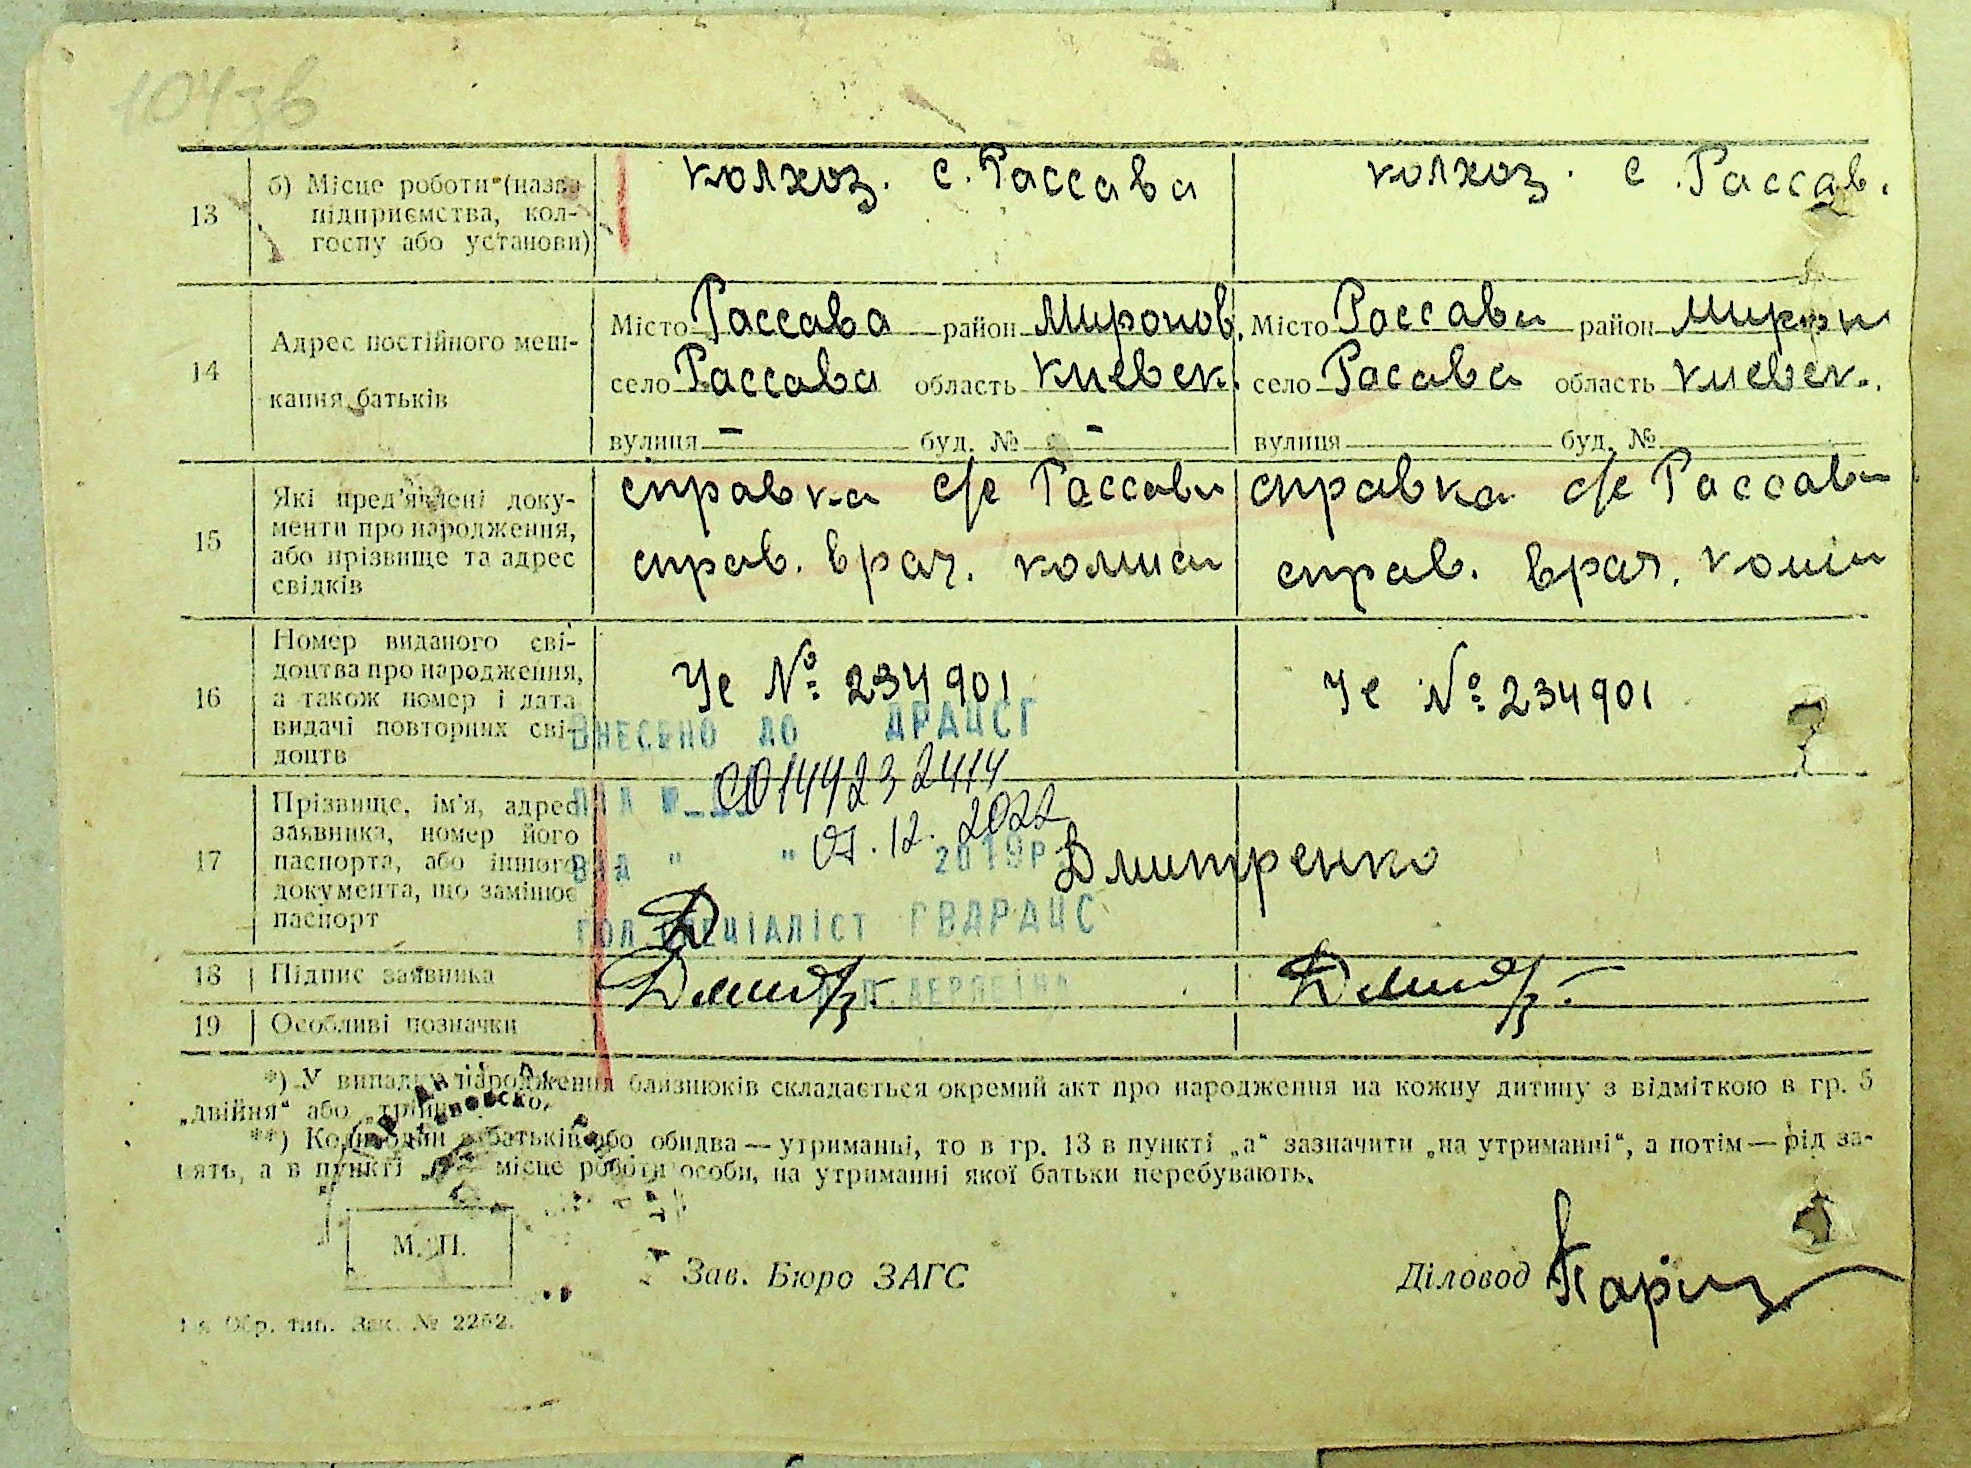 104зв
13
б) Місце роботи (назва підприємства, колгоспу або установи)
колхоз. с. Рассава
колхоз. с. Рассав.
14
Адрес постійного мешкання батьків
Місто Рассава район Миронов.
село Рассава область Киевск.
вулиця - буд. № -
Місто Рассава район Мирон
село Расава область Киевск.
вулиця буд. №
15
Які пред'явлені документи про народження, або прізвище та адрес свідків
справка с/с Рассава
справ. врач. комиси
справка с/с Рассава
справ. врач. комис
16
Номер виданого свідоцтва про народження, а також номер і дата видачі повторних свідоцтв
Че № 234901
Че № 234901
ВНЕСЕНО ДО ДРАЦСГ
ПАА № 00144232414
07.12.2022
ВІД " " 2019р.
ГОЛ СПЕЦІАЛІСТ ГВДРАЦС
17
Прізвище, ім'я, адрес заявника, номер його паспорта, або іншого документа, що замінює паспорт
Дмитренко
18
Підпис заявника
Дмитр.
Дмитр.
19
Особливі позначки
*) У випадку народження близнюків складається окремий акт про народження на кожну дитину з відміткою в гр. 5
„двійня“ або „трійня“
**) Коли один з батьків або обидва — утриманці, то в гр. 13 в пункті „а“ зазначити „на утриманні“, а потім — рід за-
нять, а в пункті місце роботи особи, на утриманні якої батьки перебувають.
М. П.
Зав. Бюро ЗАГС
Діловод
Обр. тип. Зак. № 2252.